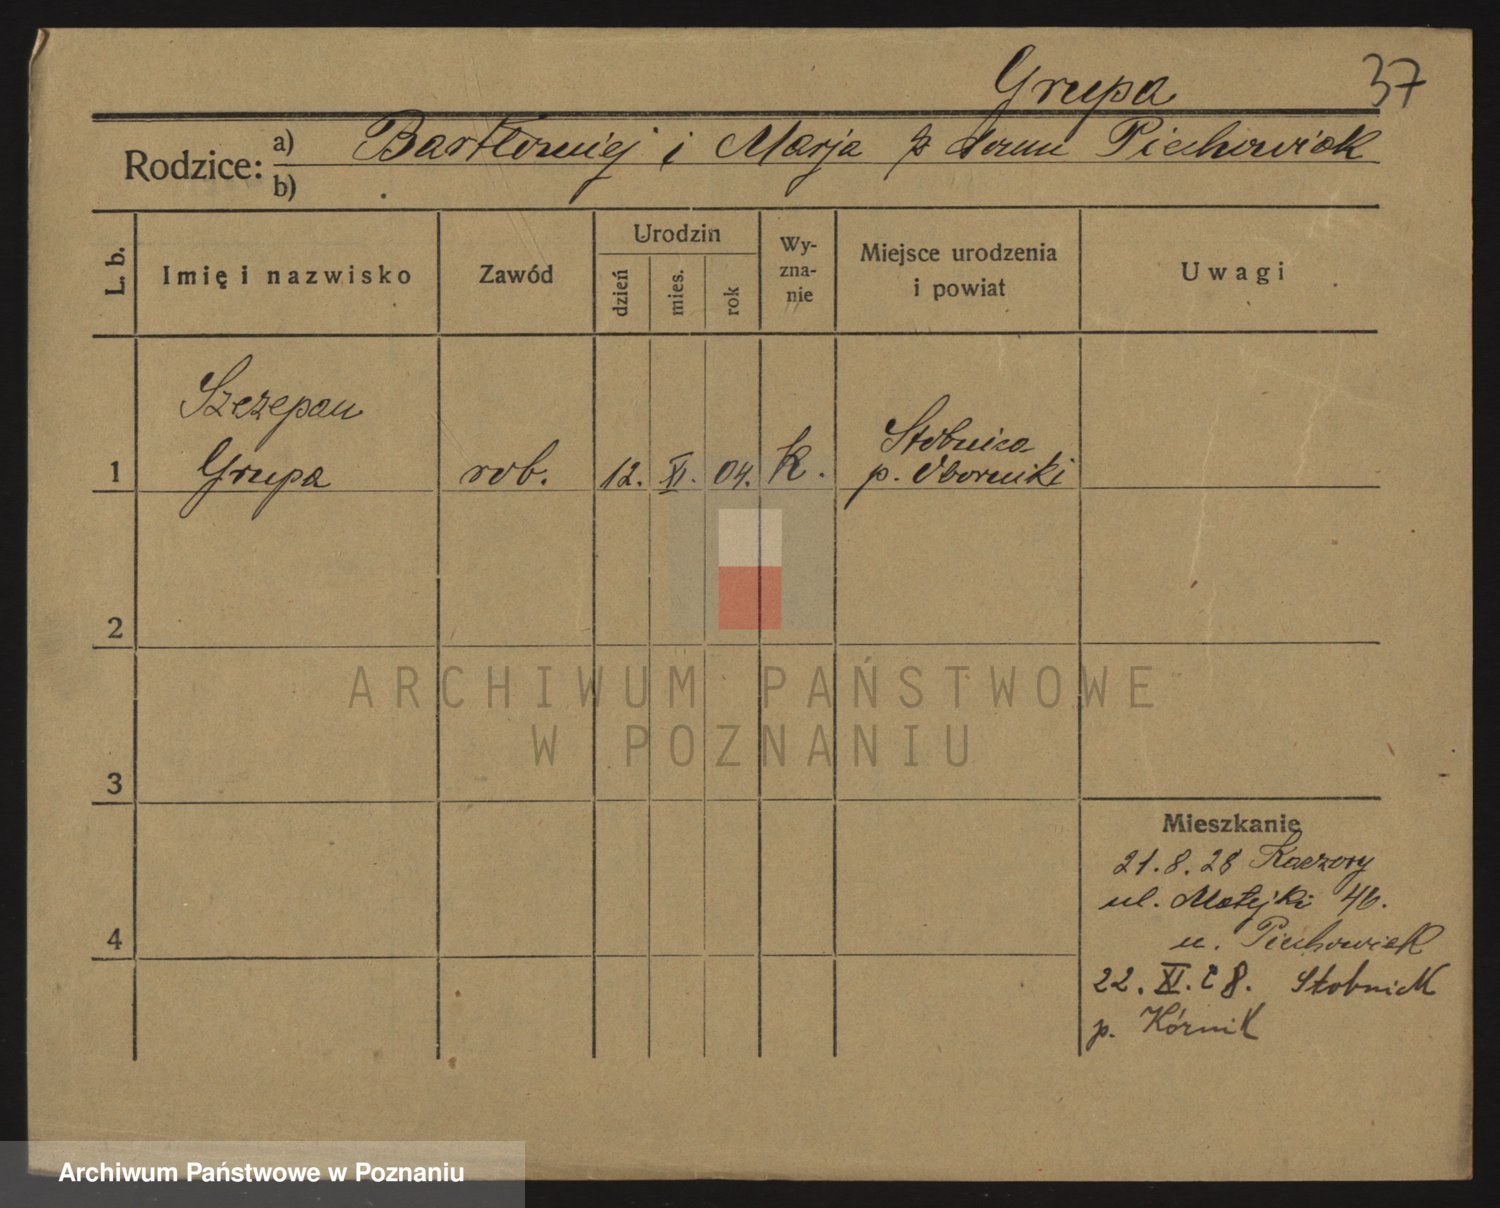 Grupa 37
Rodzice: a) Bartłomiej i Marja z domu Piechowiak
b)
L. b. Imię i nazwisko Zawód Urodzin dzień mies. rok Wy-zna-nie Miejsce urodzenia i powiat Uwagi
Szczepan
1 Grupa rob. 12. XI. 04. k. Stobnica
p. Oborniki
2
3
4
Mieszkanie
21.8.28 Kaczory
ul. Matejki 46.
u. Piechowiak
22. XI. 28. Stobnick
p. Kórnik
ARCHIWUM PAŃSTWOWE
W POZNANIU
Archiwum Państwowe w Poznaniu